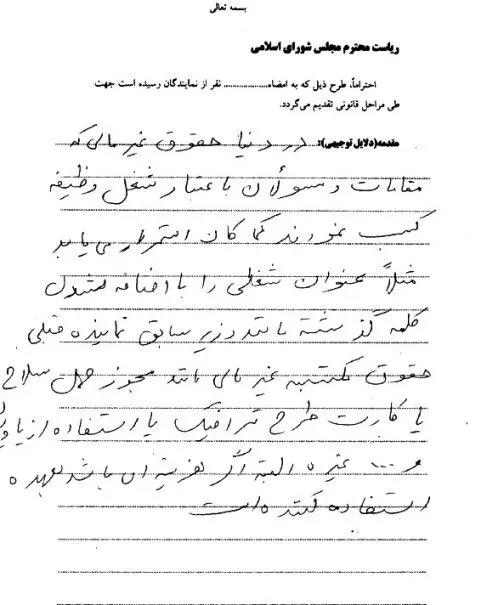 بسمه تعالی
ریاست محترم مجلس شورای اسلامی
احتراماً، طرح ذیل که به امضاء.................... نفر از نمایندگان رسیده است جهت
طی مراحل قانونی تقدیم می‌گردد.
مقدمه(دلایل توجیهی): در دنیا حقوق غیر مالی که
مقامات و مسولان با عتبار شغل وظیفه
کسب نمودند کما کان استمرار می یابد
مثلاً عنوان شغلی را با اضافه نمودن
کلمه گذشته مانند وزیر سابق نماینده قبلی
حقوق مکتسبه غیر مالی مانند مجوز حمل سلاح
یا کارت طرح ترافیک یا استفاده از
و .... غیره البته اگر هزینه ای باشد بعهده
استفاده کننده است